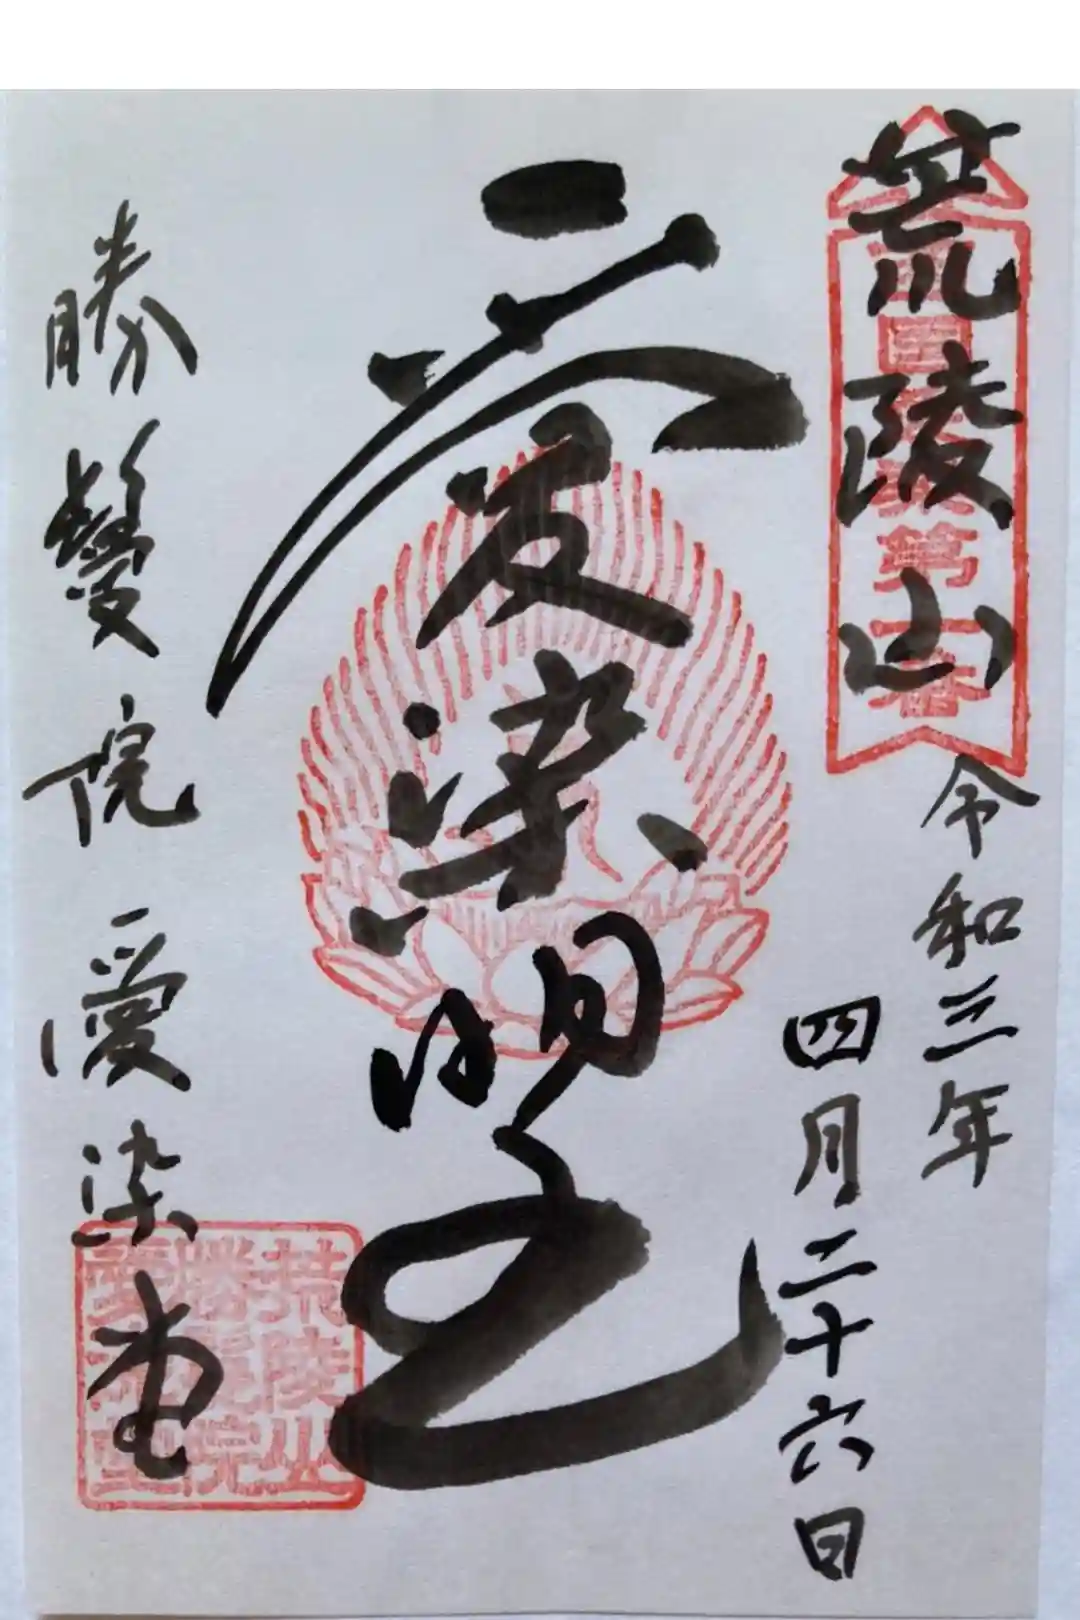 荒陵山
西国愛染第一番
令和三年
四月二十六日
愛染明王
勝鬘院愛染堂
荒陵山
勝鬘院
愛染堂